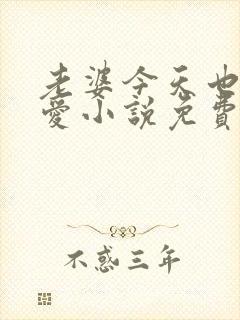 老婆今天也
愛小說免費
不惑三年